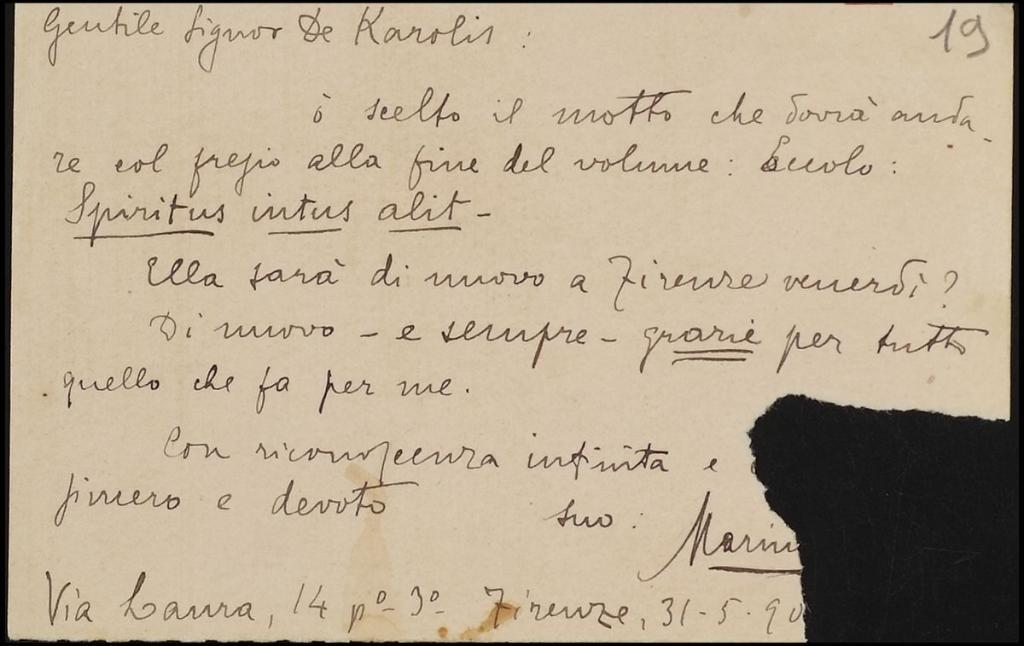 19
Gentile Signor De Karolis :
ò scelto il motto che dovrà anda-
re col fregio alla fine del volume: Eccolo:
Spiritus intus alit -
Ella sarà di nuovo a Firenze venerdì?
Di nuovo - e sempre - grazie per tutto
quello che fa per me.
Con riconoscenza infinita e
sincero e devoto suo:
Marin
Via Laura, 14 pº- 3º- Firenze, 31-5-90